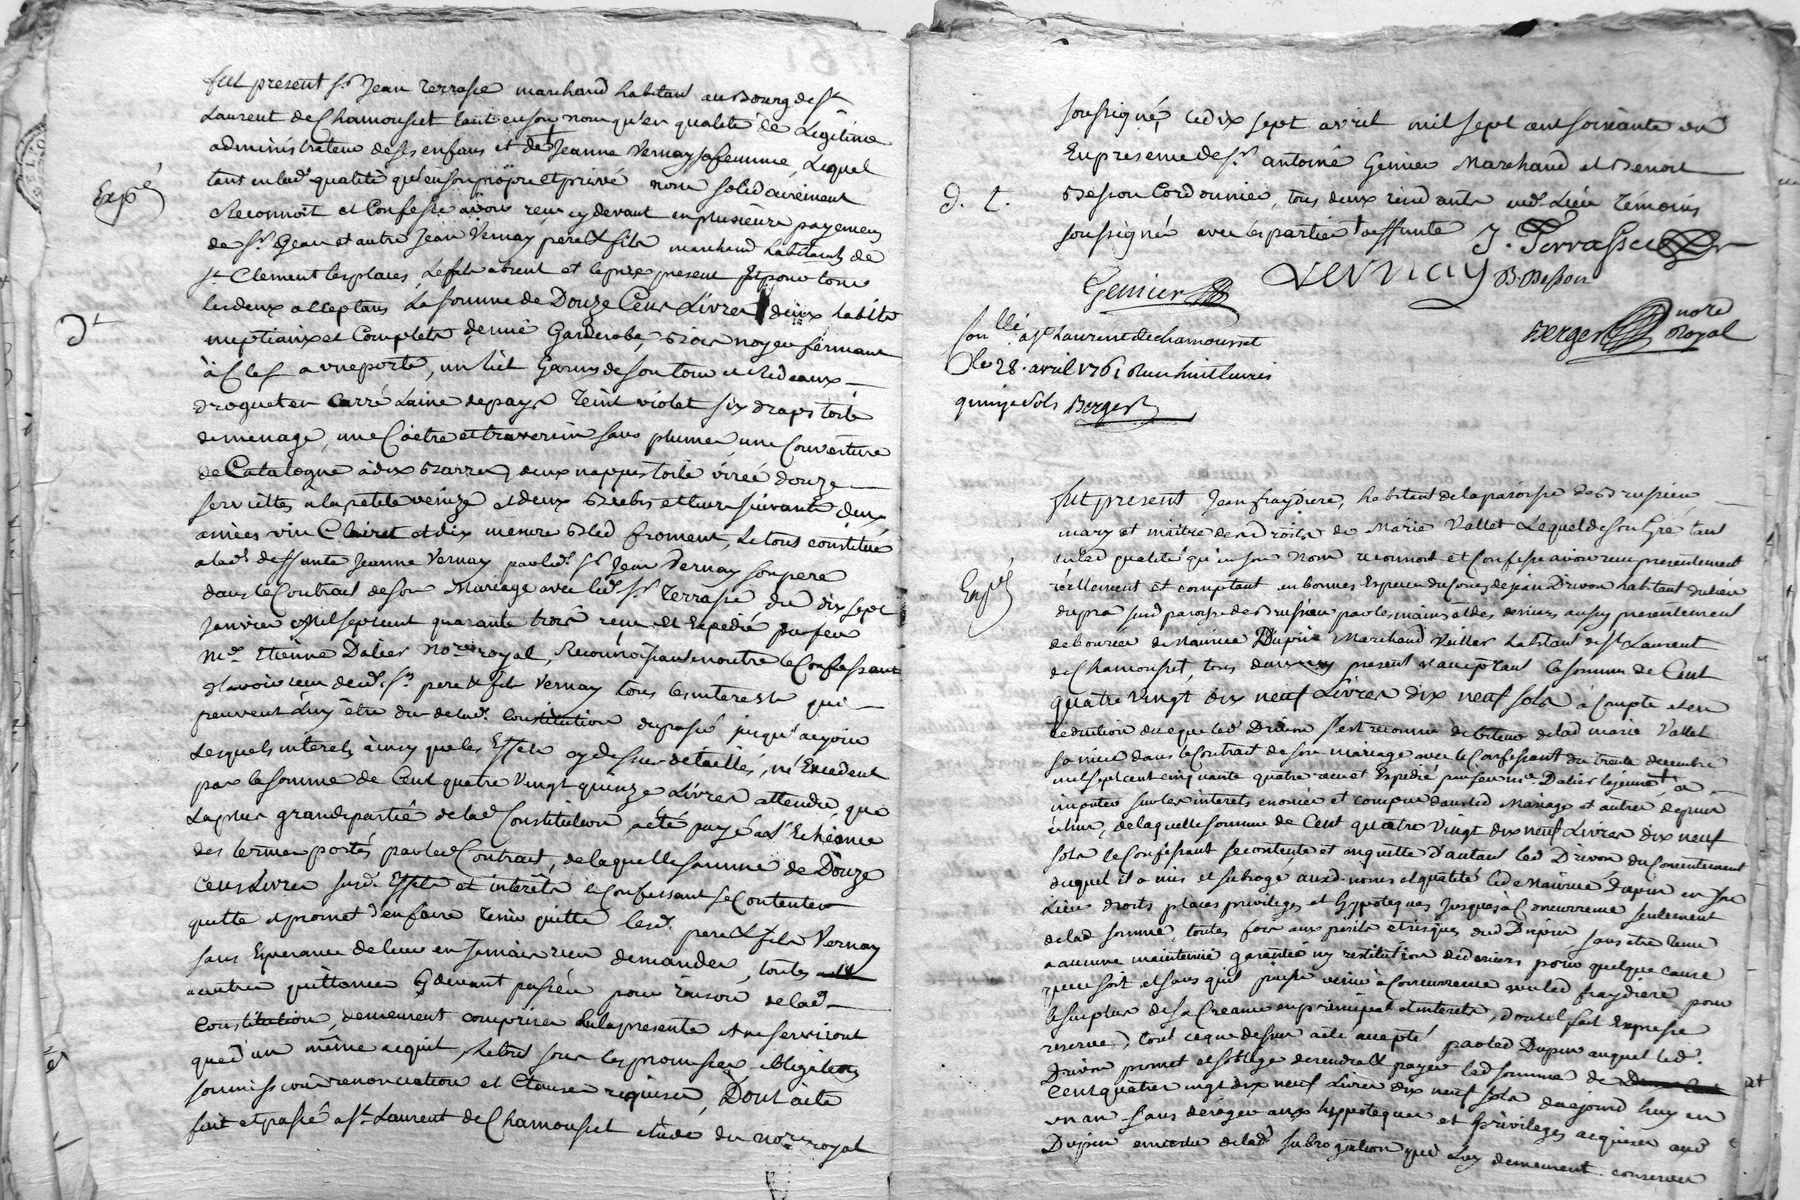 fut present sr Jean Terrasse marchand habitant au Bourg de st
Laurent de Chamousset tant en son nom qu'en qualité de Legitime
administrateur de ses enfans et de + Jeanne Vernay sa femme, Lequel
Expé
tant en lad. qualité qu'en son propre et privé nom solidairement
Reconnoit et Confesse avoir reçu cy devant en plusieurs payemens
de sr Jean et autre Jean Vernay pere & fils marchand habitants de
st Clement les places, Le fils absent et le pere present Et pour tous
les deux acceptans La somme de Douze Cens Livres deux habits
dt
nuptiaux et Complets, demie Garderobe, Bois noyer fermant
à Clef a une porte, un lit Garny de son tour et Rideaux
droguet en carré Laine de pays Teint violet six draps toile
de menage, une Coetre et traversin sans plumes, une Couverture
de Catalogne à dix Barres, deux nappes toile virée douze
serviettes a la petite venize et deux Brebis et leur suivants deux
annees vin Clairet et dix mesure Bled froment, Le tout constitué
a lad. deffunte Jeanne Vernay par led. sr Jean Vernay son pere
dans le Contrat de son Mariage avec led. sr Terrasse du dix sept
Janvier Mil sept cent quarante trois reçu et Expedié par feu
Me. Etienne Dalier Nore royal, Reconnoissant en outre le Confessant
d'avoir reçu desd. srs pere & fils Vernay tous les interest qui
peuvent Luy être dus de lad. Constitution du passé jusqu'a ce jour
Lesquels interets ainsy que les Effets cy dessus detaillés, né Excedent
pas la somme de Cent quatre Vingt quinze Livres attendu que
La plus grande partie de lad. Constitution a été payé a L'Echeance
des termes portés par led. Contrat, de laquelle somme de Douze
Cens Livres susd. Effets et interêts le Confessant se Contente
quitte et promet d'en faire Tenir quitte lesd. pere & fils Vernay
sans Esperance de leur en Jamais rien demander, toutes
autres quittances Cy devant passées pour raison de lad.
Constitution, demeurent comprises En la presente et ne serviront
que d'un même acquit, Le tout sous les promesses, obligations
soumissions renonciation et Clauses requises, Dont acte
fait et passé a st Laurent de Chamousset etude du nore royal
soussigné, le dix sept avril mil sept cent soixante un
En presence de sr antoine Genier Marchand et Benoit
d. t.
Besson Cordonnier, tous deux residants aud. Lieu Témoins
soussignés avec les parties + deffunte
J. Terrasse
Vernay
B. Besson
Genier
Berger nore Royal
Conllé a st Laurent de chamousset
le 28. avril 1761 Reçu huit livres
quinze sols Berger
fut present Jean fraydiere, habitant de la paroisse de Brussieu
mary et maitre des droits de Marie Vallet Lequel de son Gré tant
en lad. qualité qu'en son Nom reconnoit et Confesse avoir reçu presentement
Expé
réellement et comptant en bonnes Especes du Cours de jean Drivon habitant du lieu
du pra sud paroisse de Brussieu par les mains et des deniers aussy presentement
deboursés de Maurice Dupin Marchand Tuillier habitant de st Laurent
de Chamousset, tous deux present & acceptant la somme de Cent
quatre Vingt dix neuf Livres dix neuf sols à Compte et en
deduction de ce que led. Drivon s'est reconnu debiteur de lad. marie Vallet
sa niece dans le Contrat de son mariage avec le Confessant du trente decembre
mil sept cent cinquante quatre reçu et Expedié par feu me. Dalier le jeune, à
imputer sur les interets enoncés et compris dans led. Mariage et autres depuis
echus, de laquelle somme de Cent quatre Vingt dix neuf Livres dix neuf
sols le Confessant se contente et en quitte d'autant led. Drivon du Consentement
duquel il a mis et subrogé auxd. noms et qualité led. Maurice Dupin en son
Lieu droits places privileges et hypoteques jusques a Concurrence seulement
de lad. somme, toutes fois aux perils et risques dud. Dupin sans être tenu
a aucune maintenue garantie ny restitution de deniers pour quelque cause
que ce soit et sans qu'il puisse venir à Concurrence avec led. fraydiere pour
le surplus de sa Creance en principal et interets, dont il fait Expresse
reserve, tout ce que dessus a été accepté par led. Dupin auquel led.
Drivon promet et s'oblige de rendre & payer lad. somme de
Cent quatre vingt dix neuf Livres dix neuf sols dans jourd'huy en
un an sans deroger aux hypoteques et privileges acquises aud.
Dupin en vertu de lad. subrogation qui Luy demeurent conservés